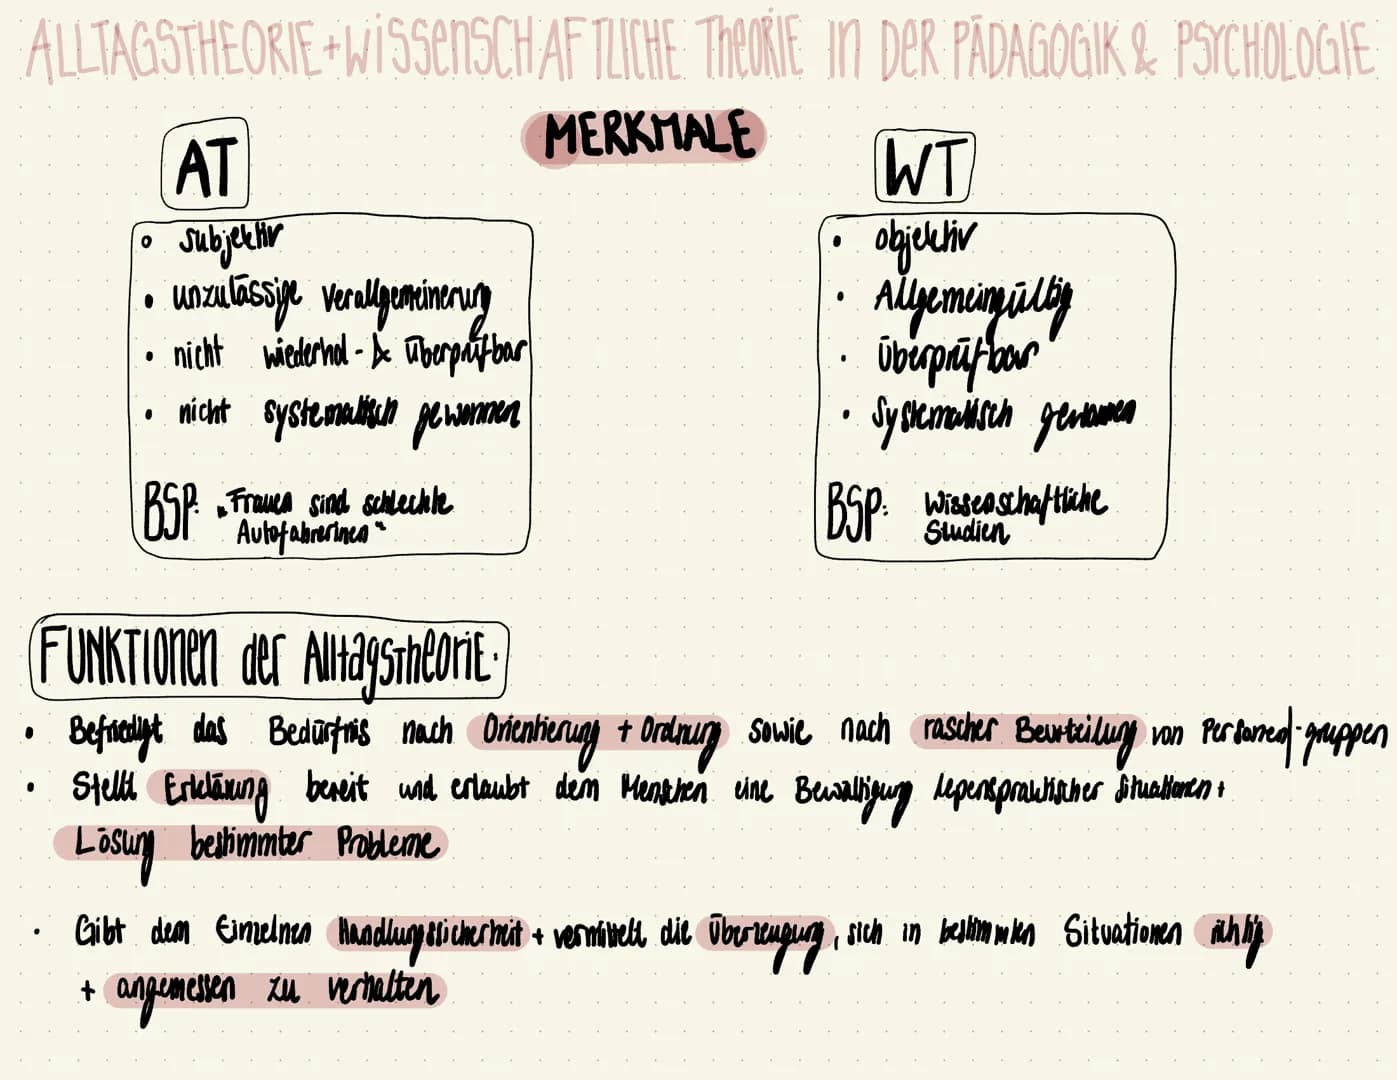 ALLTAGSTHEORIE + WISSENSCHAFTLICHE THEORIE IN DER PÄDAGOGIK & PSYCHOLOGIE
MERKMALE
AT
• subjektiv
• unzulässige Verallgemeinerung
• nicht wiederhol- & überprüfbar
• nicht systematisch gewonnen
BSP: „Frauen sind schlechte
Autofahrerinen“
WT
• objektiv
• Allgemeingültig
• Überprüfbar
• Systematisch gewonnen
BSP: Wissenschaftliche
Studien
FUNKTIONEN der Alltagstheorie.
• Befriedigt das Bedürfnis nach Orientierung + Ordnung sowie nach rascher Beurteilung von Personen/-gruppen
• Stellt Erklärung bereit und erlaubt dem Menschen eine Bewältigung lepenspraktischer Situationen +
Lösung bestimmter Probleme
• Gibt dem Einzelnen Handlungssicherheit + vermittelt die Überzeugung, sich in bestimmten Situationen richtig
+ angemessen zu verhalten